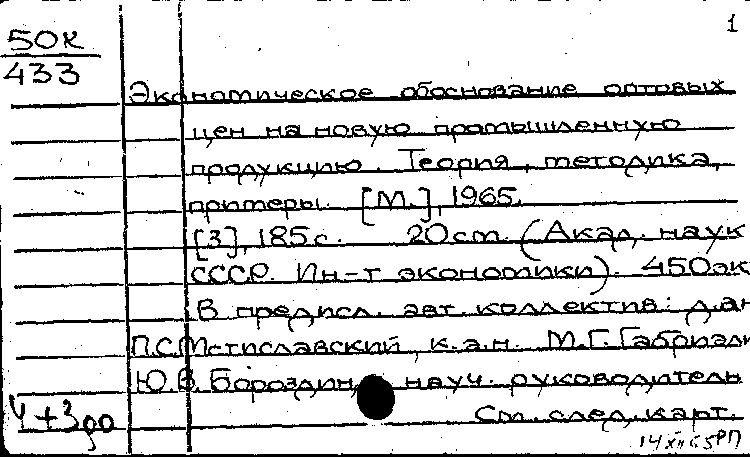 1
50к
433
Экономическое обоснование оптовых
цен на новую промышленную
продукцию. Теория, методика,
примеры. [М.], 1965.
[3], 185 с. 20 см. (Акад. наук
СССР. Ин-т экономики). 450 эк
В предисл. авт. коллектив: д.эн
П.С. Мстиславский, к.э.н. М.Г. Габриэли
Ю.В. Бороздин, науч. руководитель
См. след. карт.
14 XII 65